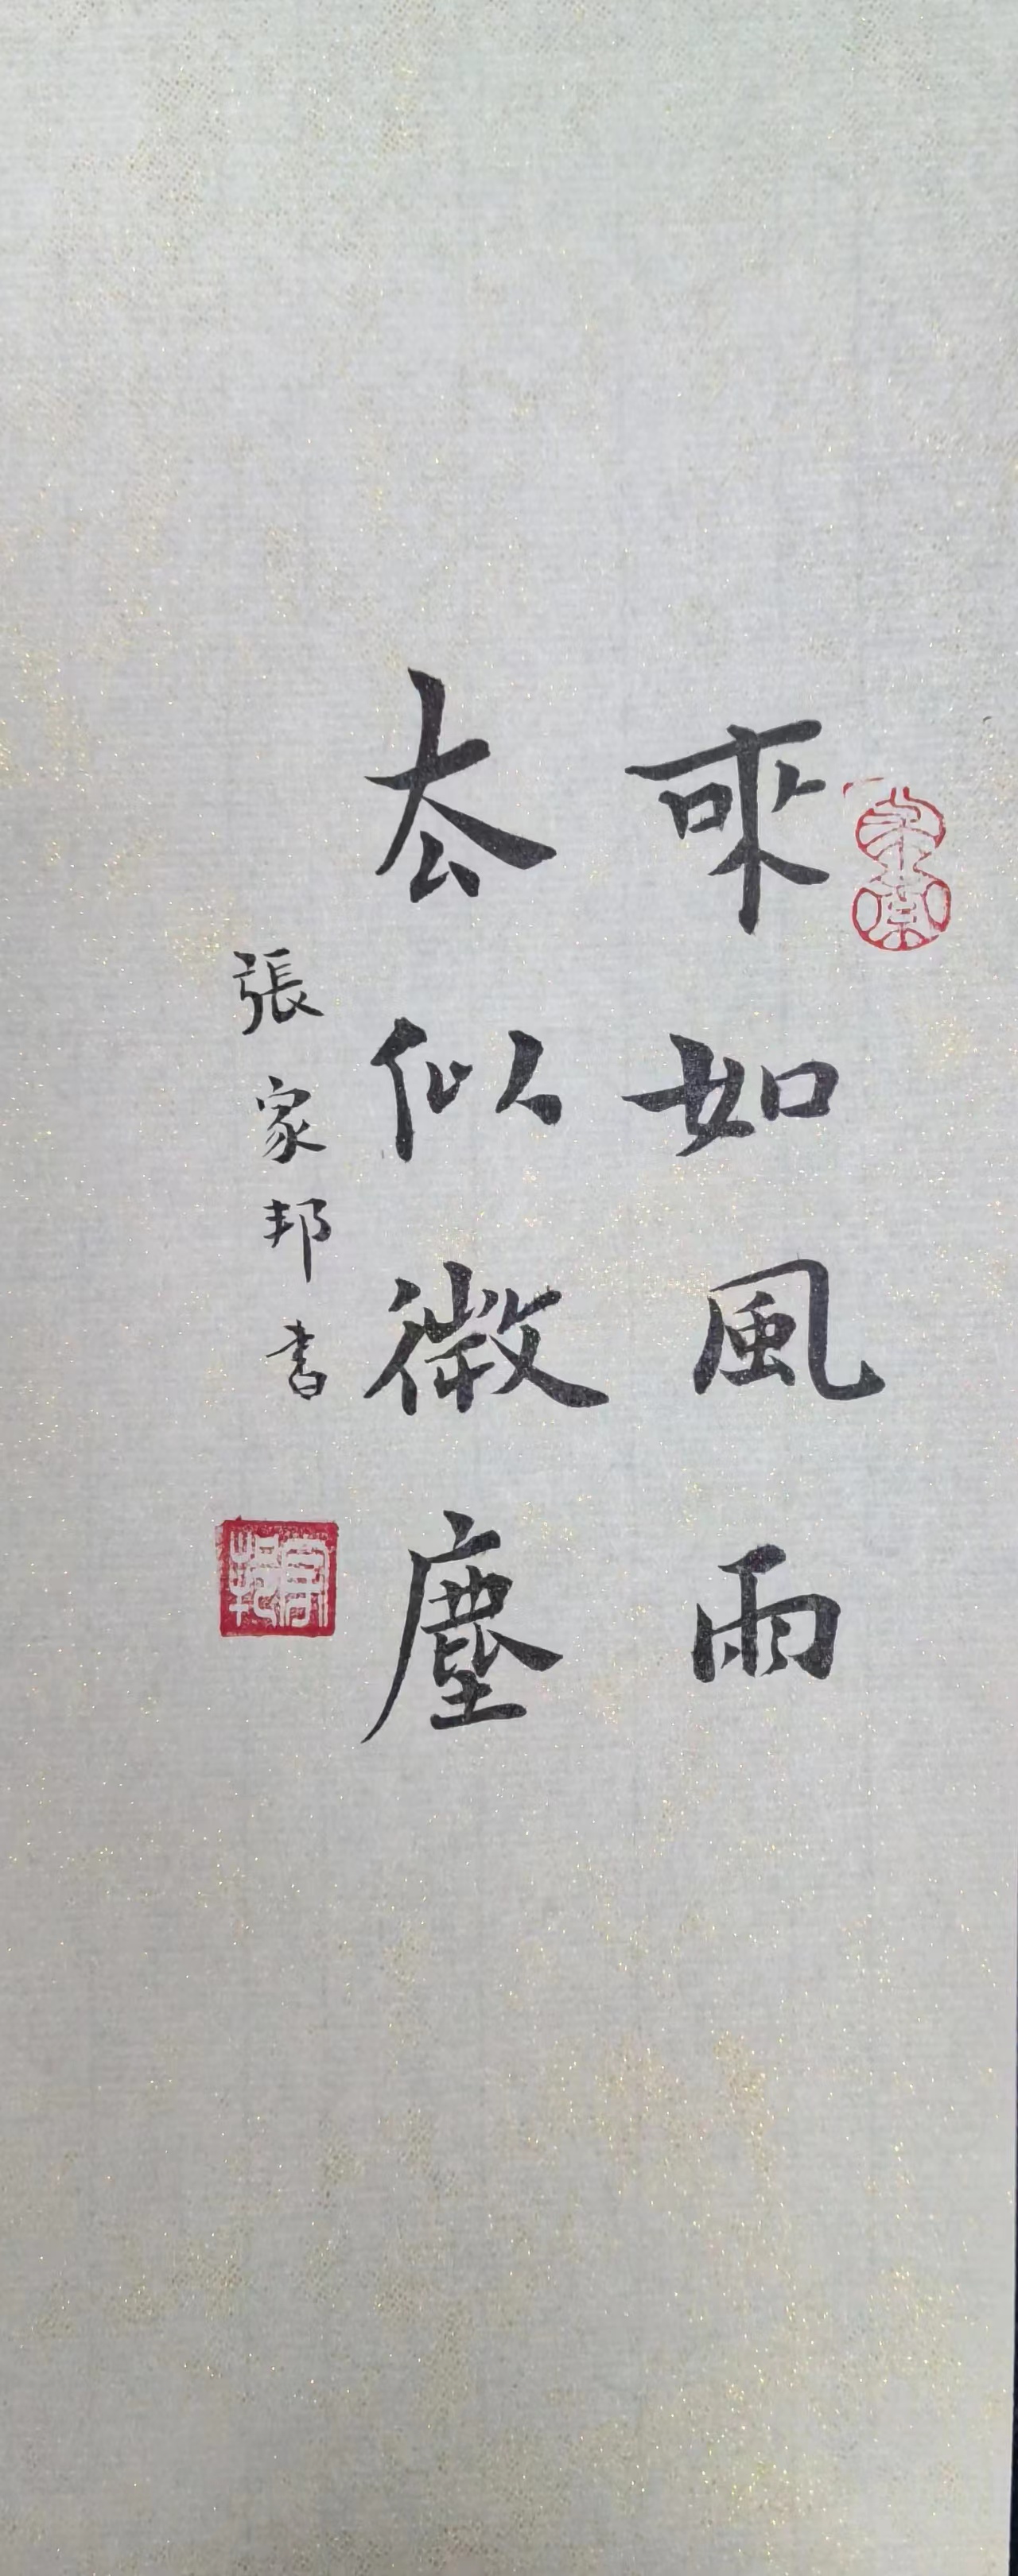 來如風雨
去似微塵
張家邦書